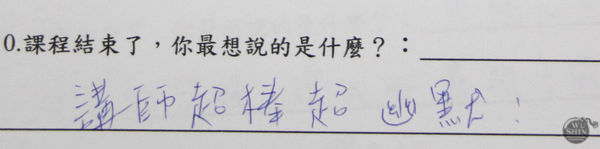 0.課程結束了，你最想說的是什麼？：
講師超棒超幽默！
WU SHIN